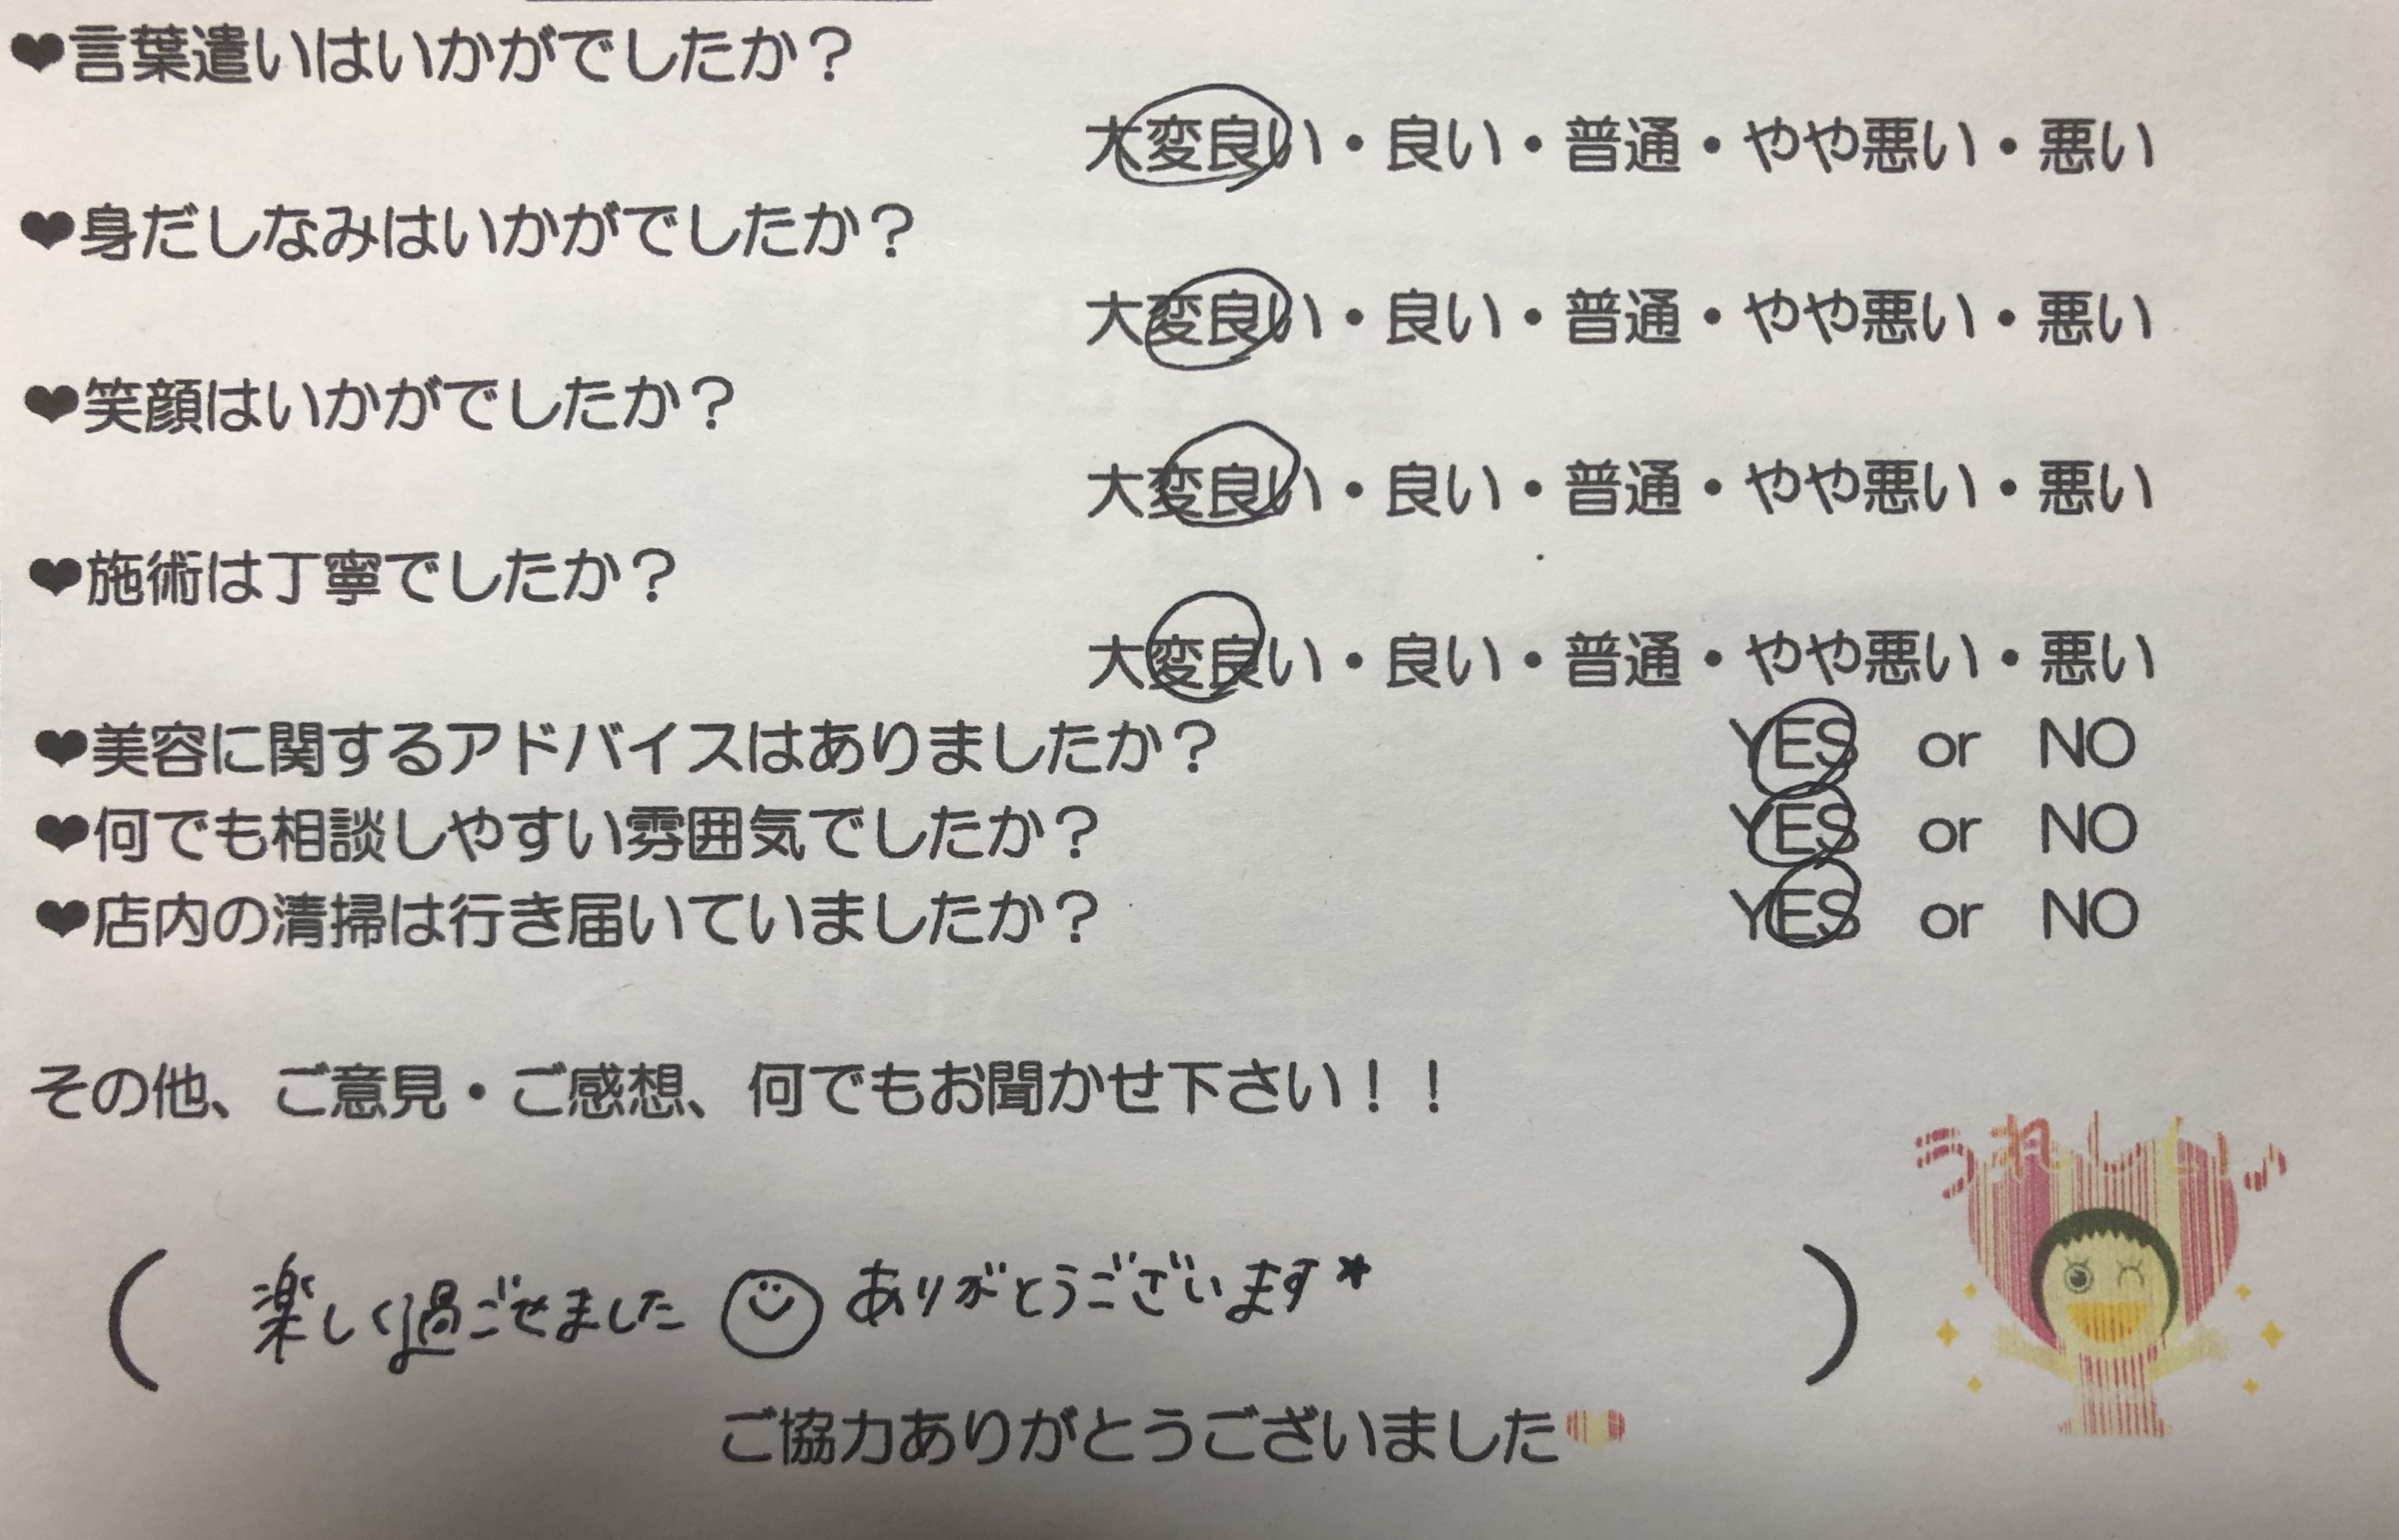 ❤言葉遣いはいかがでしたか？
大変良い・良い・普通・やや悪い・悪い
❤身だしなみはいかがでしたか？
大変良い・良い・普通・やや悪い・悪い
❤笑顔はいかがでしたか？
大変良い・良い・普通・やや悪い・悪い
❤施術は丁寧でしたか？
大変良い・良い・普通・やや悪い・悪い
❤美容に関するアドバイスはありましたか？ YES or NO
❤何でも相談しやすい雰囲気でしたか？ YES or NO
❤店内の清掃は行き届いていましたか？ YES or NO
その他、ご意見・ご感想、何でもお聞かせ下さい！！
うれしい♪
（ 楽しく過ごせました ☺ ありがとうございます* ）
ご協力ありがとうございました